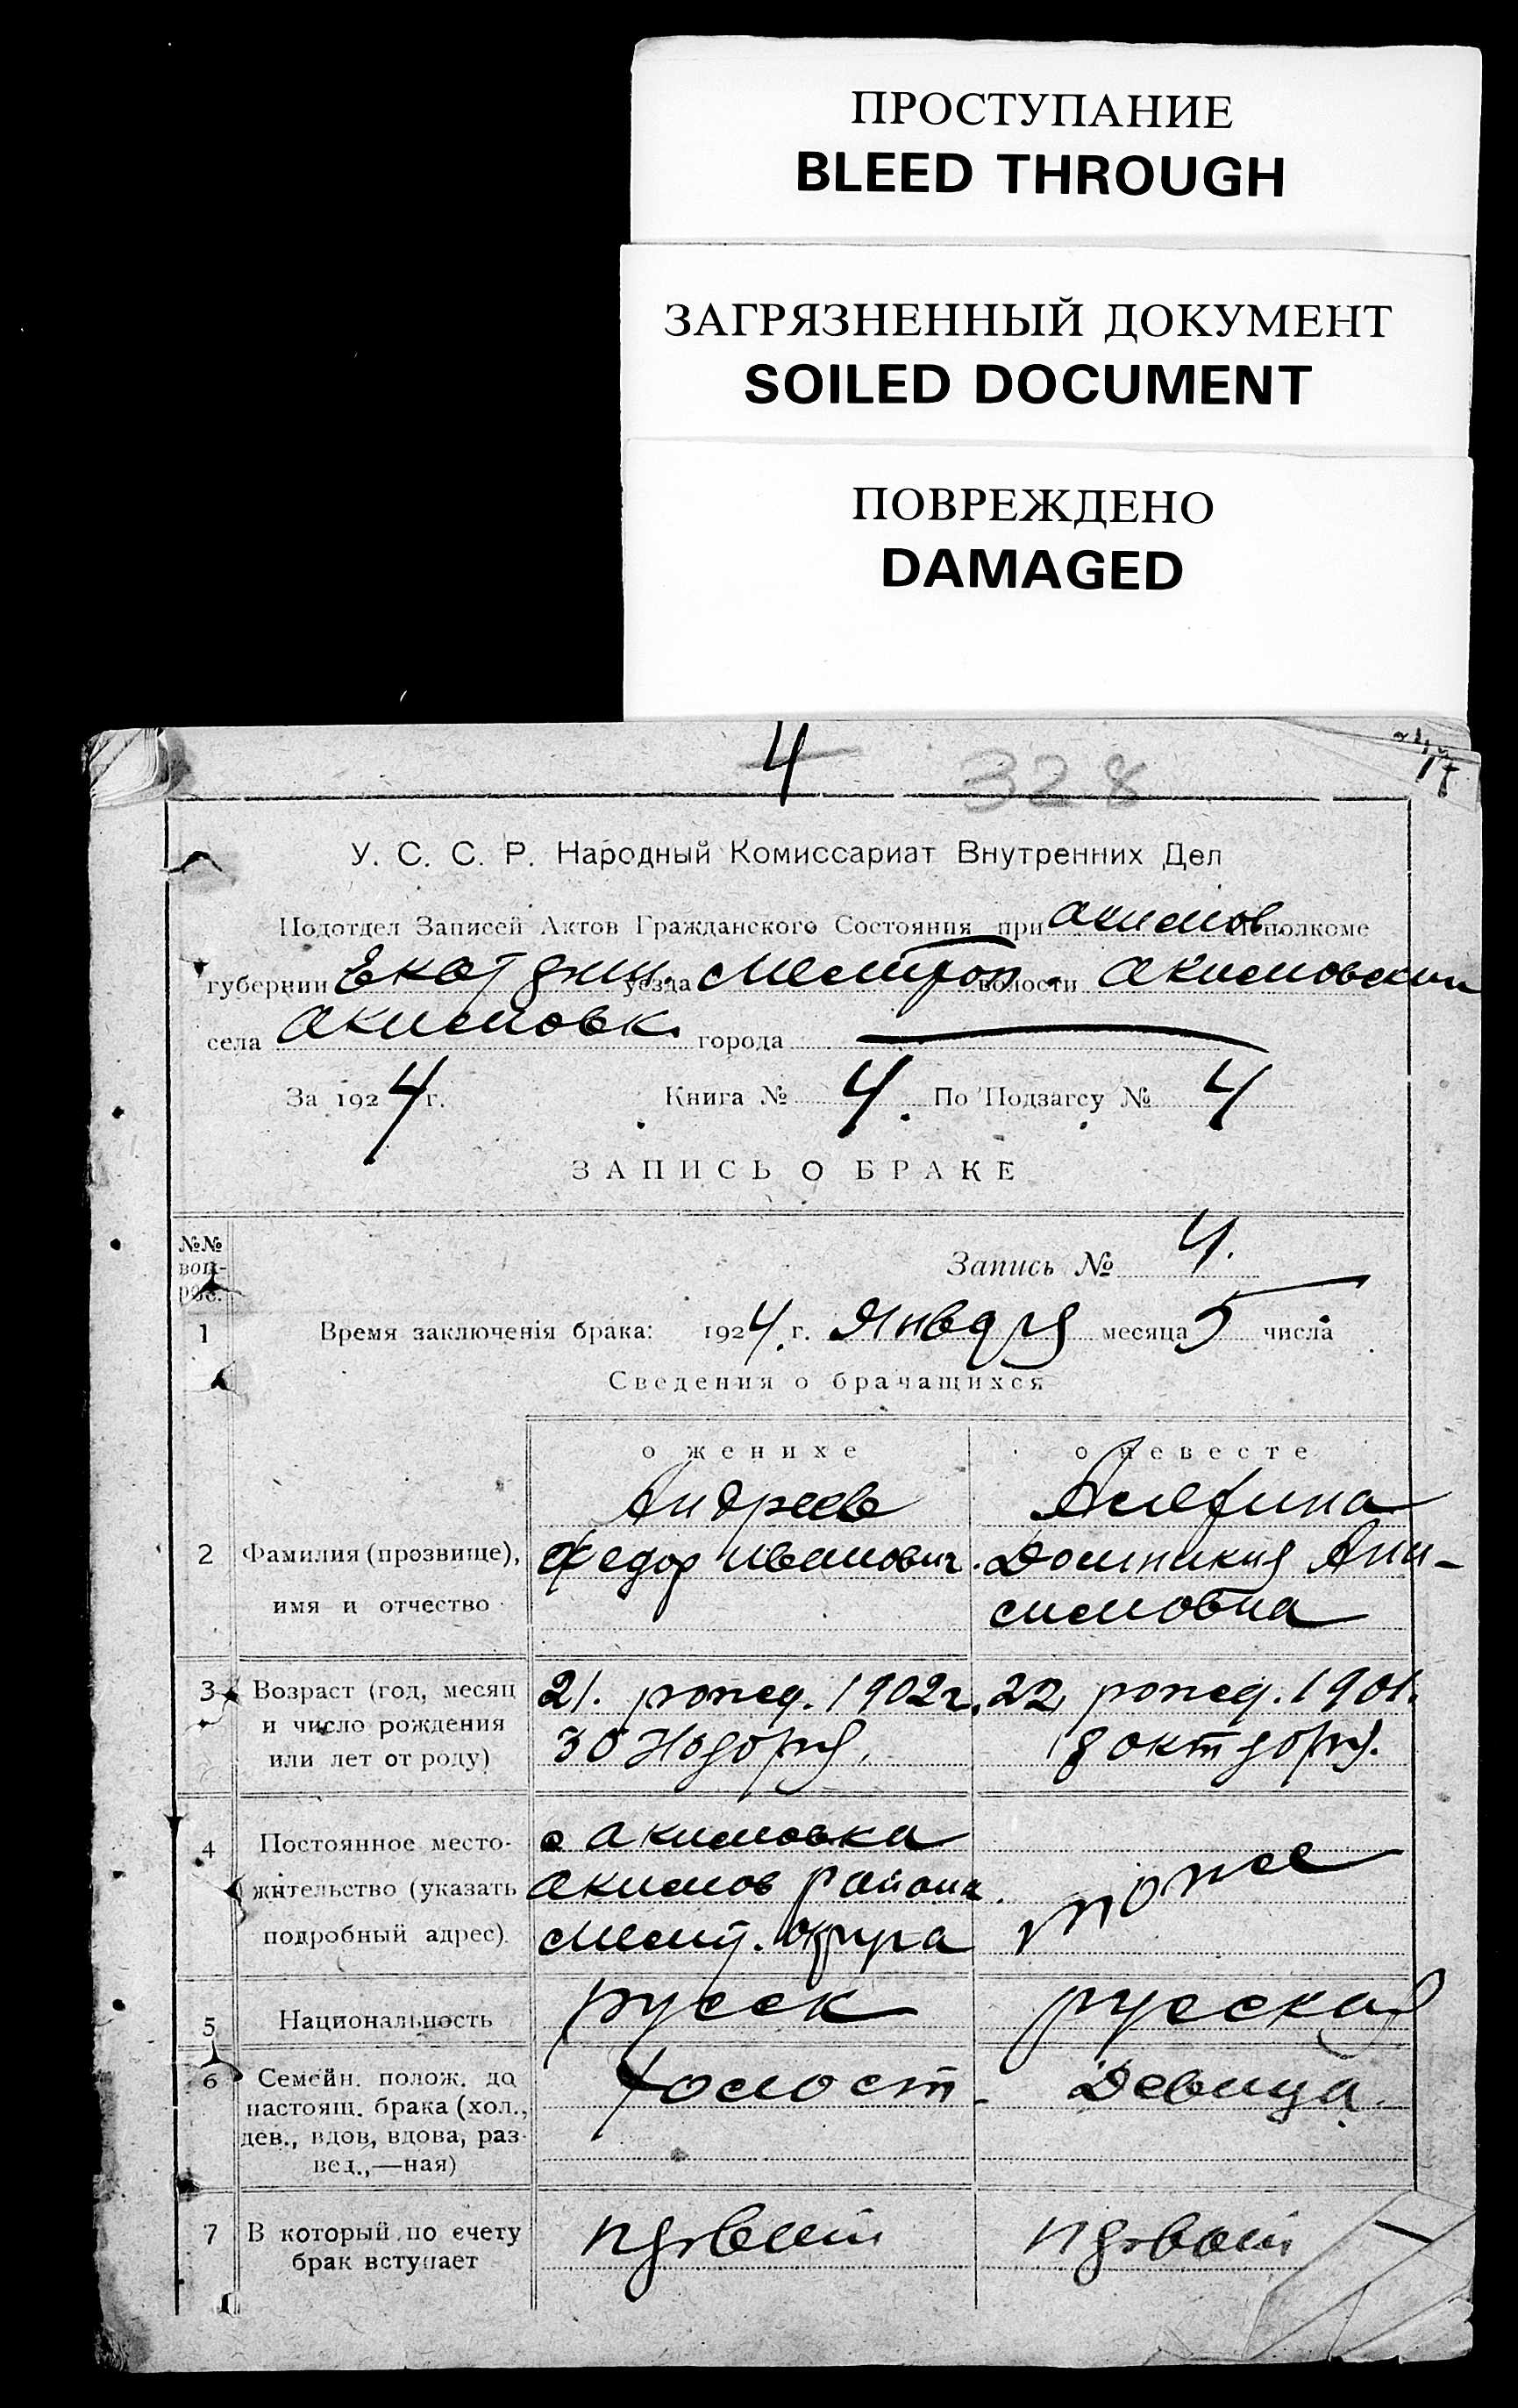 ПРОСТУПАНИЕ
BLEED THROUGH
ЗАГРЯЗНЕННЫЙ ДОКУМЕНТ
SOILED DOCUMENT
ПОВРЕЖДЕНО
DAMAGED
4 328
У. С. С. Р. Народный Комиссариат Внутренних Дел
Подотдел Записей Актов Гражданского Состояния при Акимов. Исполкоме
губернии Екатерин. уезда Мелитоп. волости Акимовский
села Акимовк. города
За 1924 г. Книга № 4. По Подзагсу № 4
ЗАПИСЬ О БРАКЕ
№№ воп-рос.
Запись № 4.
1 Время заключенія брака: 1924. г. Января месяца 5 числа
Сведения о брачащихся
о женихе о невесте
Андреев
2 Фамилия (прозвище), Федор Иванович. Домникия Ани-
имя и отчество симовна
3 Возраст (год, месяц 21. рожед. 1902 г. 22 рожед. 1901.
и число рождения 30 Ноября, 8 октября.
или лет от роду)
4 Постоянное место- с Акимовка
жительство (указать Акимов района. тоже
подробный адрес). Мелит. округа
5 Национальность русск русская
6 Семейн. полож. до холост - Девица.
настоящ. брака (хол.,
дев., вдов, вдова, раз-
вед.,—ная)
7 В который по счету первый первый
брак вступает